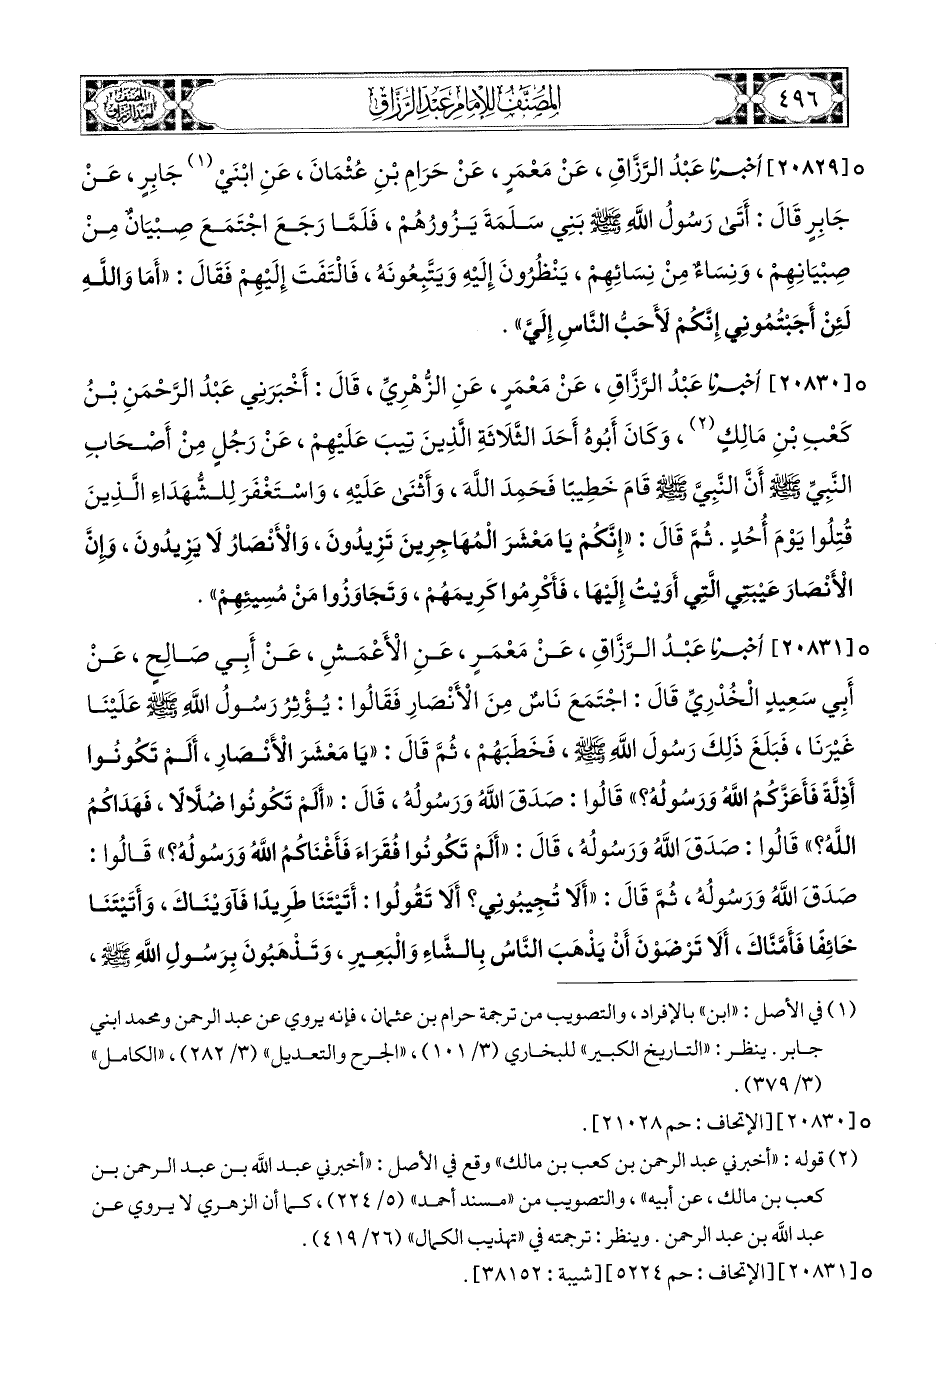 المصنف للإمام عبد الرزاق
٤٩٦
المصنف لعبد الرزاق
٥ [٢٠٨٢٩] أخبرنا عَبْدُ الرَّزَّاقِ، عَنْ مَعْمَرٍ، عَنْ حَرَامِ بْنِ عُثْمَانَ، عَنِ ابْنَيْ (١) جَابِرٍ، عَنْ
جَابِرٍ قَالَ: أَتَى رَسُولُ اللَّهِ ﷺ بَنِي سَلَمَةَ يَزُورُهُمْ، فَلَمَّا رَجَعَ اجْتَمَعَ صِبْيَانٌ مِنْ
صِبْيَانِهِمْ، وَنِسَاءٌ مِنْ نِسَائِهِمْ، يَنْظُرُونَ إِلَيْهِ وَيَتَّبِعُونَهُ، فَالْتَفَتَ إِلَيْهِمْ فَقَالَ: «أَمَا وَاللَّهِ
لَئِنْ أَجَبْتُمُونِي إِنَّكُمْ لَأَحَبُّ النَّاسِ إِلَيَّ».
٥ [٢٠٨٣٠] أخبرنا عَبْدُ الرَّزَّاقِ، عَنْ مَعْمَرٍ، عَنِ الزُّهْرِيِّ، قَالَ: أَخْبَرَنِي عَبْدُ الرَّحْمَنِ بْنُ
كَعْبِ بْنِ مَالِكٍ (٢)، وَكَانَ أَبُوهُ أَحَدَ الثَّلَاثَةِ الَّذِينَ تِيبَ عَلَيْهِمْ، عَنْ رَجُلٍ مِنْ أَصْحَابِ
النَّبِيِّ ﷺ أَنَّ النَّبِيَّ ﷺ قَامَ خَطِيبًا فَحَمِدَ اللَّهَ، وَأَثْنَى عَلَيْهِ، وَاسْتَغْفَرَ لِلشُّهَدَاءِ الَّذِينَ
قُتِلُوا يَوْمَ أُحُدٍ. ثُمَّ قَالَ: «إِنَّكُمْ يَا مَعْشَرَ الْمُهَاجِرِينَ تَزِيدُونَ، وَالْأَنْصَارُ لَا يَزِيدُونَ، وَإِنَّ
الْأَنْصَارَ عَيْبَتِي الَّتِي أَوَيْتُ إِلَيْهَا، فَأَكْرِمُوا كَرِيمَهُمْ، وَتَجَاوَزُوا مَنْ مُسِيئِهِمْ».
٥ [٢٠٨٣١] أخبرنا عَبْدُ الرَّزَّاقِ، عَنْ مَعْمَرٍ، عَنِ الْأَعْمَشِ، عَنْ أَبِي صَالِحٍ، عَنْ
أَبِي سَعِيدٍ الْخُدْرِيِّ قَالَ: اجْتَمَعَ نَاسٌ مِنَ الْأَنْصَارِ فَقَالُوا: يُؤْثِرُ رَسُولُ اللَّهِ ﷺ عَلَيْنَا
غَيْرَنَا، فَبَلَغَ ذَلِكَ رَسُولَ اللَّهِ ﷺ، فَخَطَبَهُمْ، ثُمَّ قَالَ: «يَا مَعْشَرَ الْأَنْصَارِ، أَلَمْ تَكُونُوا
أَذِلَّةً فَأَعَزَّكُمُ اللَّهُ وَرَسُولُهُ؟» قَالُوا: صَدَقَ اللَّهُ وَرَسُولُهُ، قَالَ: «أَلَمْ تَكُونُوا ضُلَّالًا، فَهَدَاكُمُ
اللَّهُ؟» قَالُوا: صَدَقَ اللَّهُ وَرَسُولُهُ، قَالَ: «أَلَمْ تَكُونُوا فُقَرَاءَ فَأَغْنَاكُمُ اللَّهُ وَرَسُولُهُ؟» قَالُوا:
صَدَقَ اللَّهُ وَرَسُولُهُ، ثُمَّ قَالَ: «أَلَا تُجِيبُونِي؟ أَلَا تَقُولُوا: أَتَيْتَنَا طَرِيدًا فَآوَيْنَاكَ، وَأَتَيْتَنَا
خَائِفًا فَأَمَّنَّاكَ، أَلَا تَرْضَوْنَ أَنْ يَذْهَبَ النَّاسُ بِالشَّاءِ وَالْبَعِيرِ، وَتَذْهَبُونَ بِرَسُولِ اللَّهِ ﷺ،
(١) في الأصل: «ابن» بالإفراد، والتصويب من ترجمة حرام بن عثمان، فإنه يروي عن عبد الرحمن ومحمد ابني
جابر. ينظر: «التاريخ الكبير» للبخاري (٣/ ١٠١)، «الجرح والتعديل» (٣/ ٢٨٢)، «الكامل»
(٣/ ٣٧٩).
٥ [٢٠٨٣٠] [الإتحاف: حم ٢١٠٢٨].
(٢) قوله: «أخبرني عبد الرحمن بن كعب بن مالك» وقع في الأصل: «أخبرني عبد الله بن عبد الرحمن بن
كعب بن مالك، عن أبيه»، والتصويب من «مسند أحمد» (٥/ ٢٢٤)، كما أن الزهري لا يروي عن
عبد الله بن عبد الرحمن. وينظر: ترجمته في «تهذيب الكمال» (٢٦/ ٤١٩).
٥ [٢٠٨٣١] [الإتحاف: حم ٥٢٢٤] [شيبة: ٣٨١٥٢].